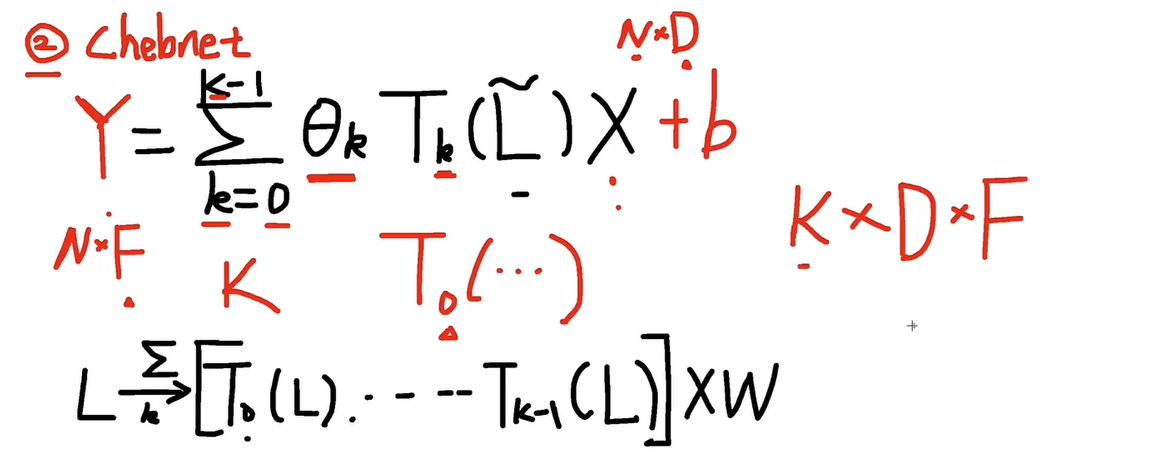 ② Chebnet
N×D
Y = Σ_{k=0}^{k-1} θ_k T_k(L̃)X + b
K×D×F
N×F
K
T_0(...)
L →_k^Σ [T_0(L).·---T_{k-1}(L)]XW